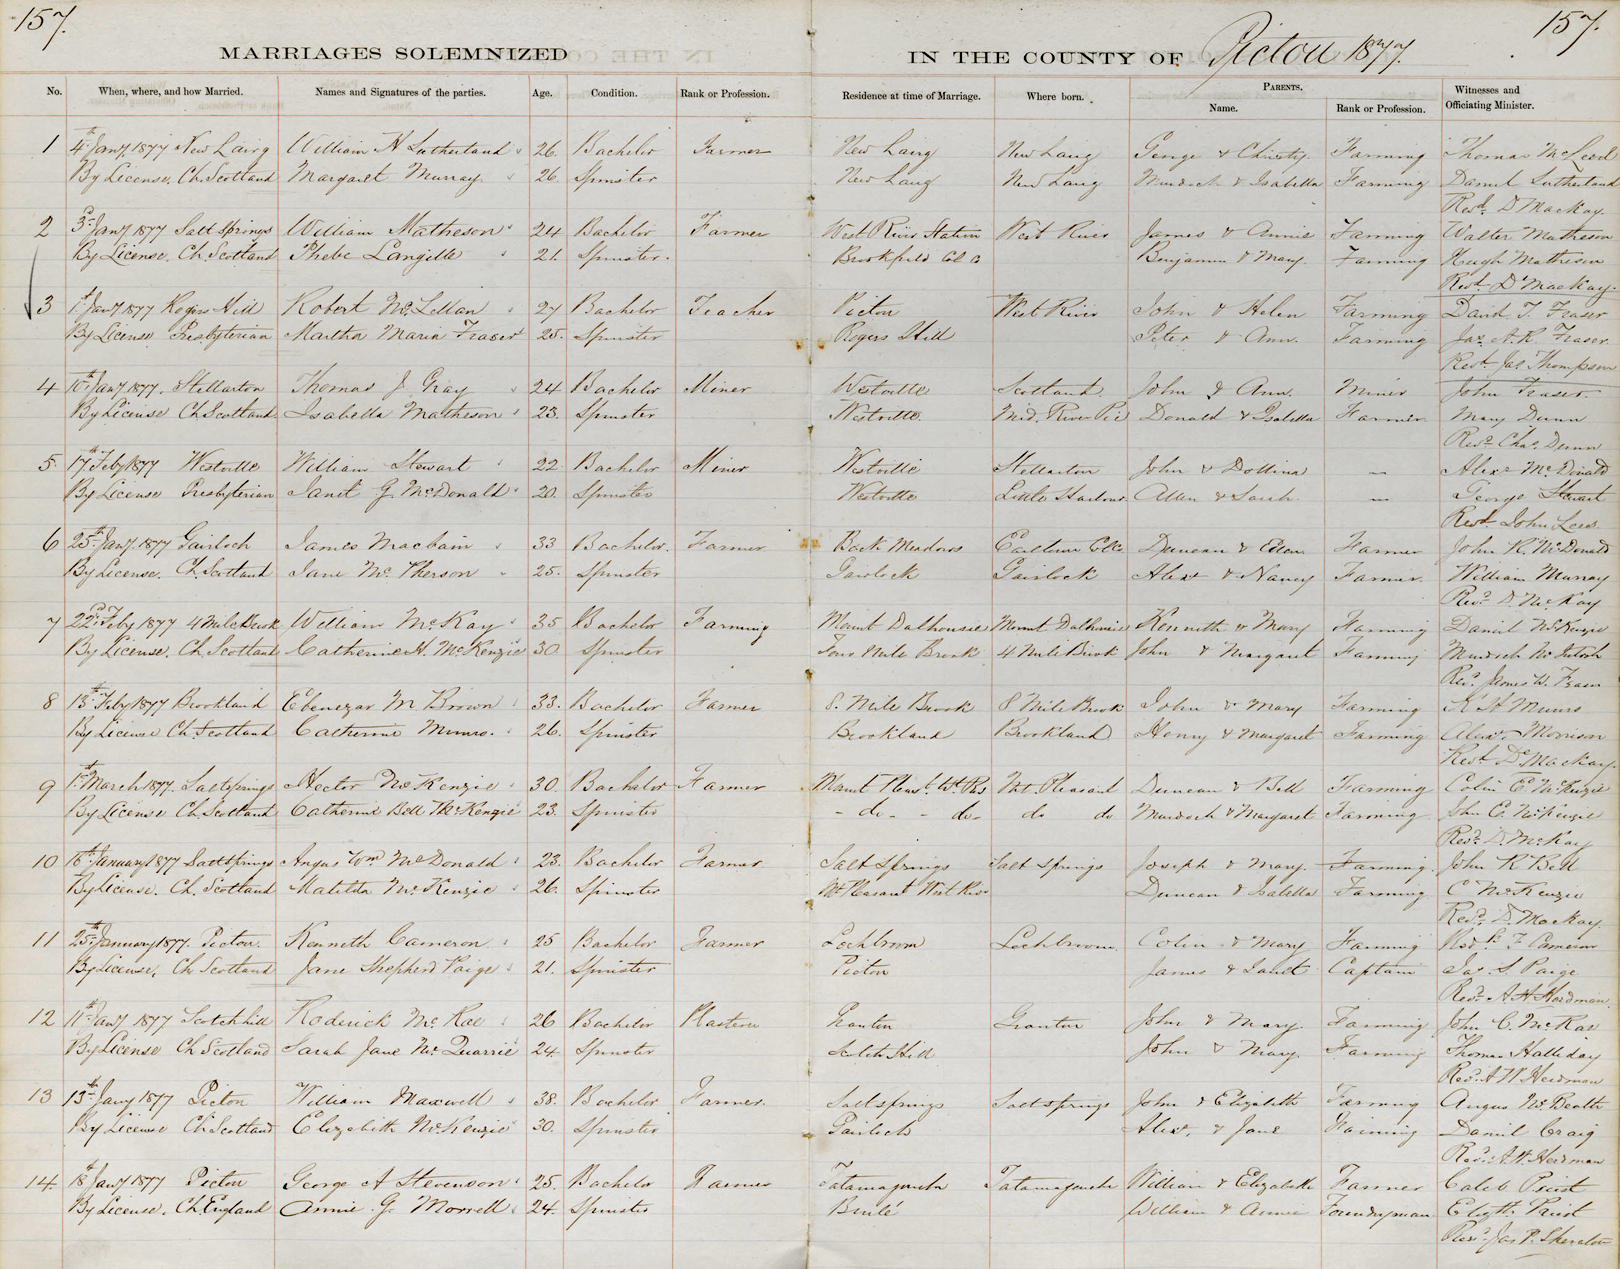 157. 157.
MARRIAGES SOLEMNIZED IN THE COUNTY OF Pictou 1877.
No. When, where, and how Married. Names and Signatures of the parties. Age. Condition. Rank or Profession. Residence at time of Marriage. Where born. PARENTS. Name. Rank or Profession. Witnesses and Officiating Minister.
1 4th Jany. 1877 New Lairg William H Sutherland 26 Bachelor Farmer New Lairg New Lairg George & Christy Farming Thomas McLeod
By License. Ch. Scotland Margaret Murray 26 Spinster New Lairg New Lairg Murdoch & Isabella Farming Daniel Sutherland
Revd. D MacKay.
2 3rd Jany 1877 Salt Springs William Matheson 24 Bachelor Farmer West River Station West River James & Annie Farming Walter Matheson
By License. Ch. Scotland Phebe Langille 21. Spinster. Brookfield Benjamin & Mary. Farming Hugh Matheson
Revd. D. MacKay.
3 1st Jany 1877 Rogers Hill Robert McLellan 27 Bachelor Teacher Pictou West River John & Helen Farming David T. Fraser
By License Presbyterian Martha Maria Fraser 25. Spinster Rogers Hill Peter & Ann. Farming Jas A. R. Fraser.
Revd. Jas Thompson
4 10th Jany 1877. Stellarton Thomas J. Gray 24 Bachelor Miner Westville Scotland. John & Ann. Miner John Fraser.
By License Ch. Scotland. Isabella Matheson 23. Spinster Westville. Mid. River Pic Donald & Isabella Farmer Mary Dunn
Revd. Chas. Dunn
5. 17th Feby 1877 Westville William Stewart 22 Bachelor Miner Westville Stellarton John & Dollina — Alexr McDonald
By License Presbyterian Janet G. McDonald 20. Spinster Westville Little Harbour Allan & Sarah. — George Stewart
Revd. John Lees.
6 25th Jany. 1877 Gairloch James Macbain 33 Bachelor. Farmer Back Meadows Earltown Col. Duncan & Eden Farmer John R. McDonald
By License. Ch. Scotland Jane McPherson 25. Spinster Gairlock Gairlock Alexr & Nancy Farmer. William Murray
Revd. D. McKay
7 22nd Feby 1877 4 Mile Brook William McKay 35 Bachelor Farming Mount Dalhousie Mount Dalhousie Kenneth & Mary Farming Daniel McKenzie
By License. Ch. Scotland Catherine H. McKenzie 30 Spinster Four Mile Brook 4 Mile Brook John & Margaret Farming Murdoch McIntosh
Revd. James W. Fraser
8 13th Feby 1877 Brookland Ebenezar M Brown 33. Bachelor Farmer 8. Mile Brook 8 Mile Brook John & Mary Farming Munro
By License Ch. Scotland Catherine Munro. 26. Spinster Brookland Brookland Henry & Margaret Farming Alexr. Morrison
Revd D. MacKay.
9 1st March 1877. Saltsprings Hector McKenzie 30. Bachelor Farmer Mount Pleast. Wt. Riv Mt Pleasant Duncan & Bell Farming Colin E. McKenzie
By License Ch. Scotland Catherine Bell McKenzie 23. Spinster - do - - do - do do Murdoch & Margaret Farming. John C. McKenzie
Revd. D. McKay
10 16th January 1877 Saltsprings Angus Wm McDonald 23. Bachelor Farmer Salt Springs Salt Springs Joseph & Mary. Farming John R Bell
By License. Ch. Scotland Matilda McKenzie 26. Spinster Mt Pleasant West Riv. Duncan & Isabella Farming C McKenzie
Revd. D. MacKay.
11 25th January 1877. Pictou. Kenneth Cameron 25 Bachelor Farmer Lochbroom Lochbroom. Colin & Mary Farming F Cameron
By License. Ch Scotland Jane Shepherd Paige 21. Spinster Pictou James & Janet Captain Jas. S Paige
Revd. A H Herdman.
12 11th Jany 1877 Scotch hill Roderick McRae 26 Bachelor Plasterer Granton Granton John & Mary. Farming John C. McRae
By License Ch Scotland Sarah Jane McQuarrie 24 Spinster Scotch Hill John & Mary. Farming Thomas Halliday
Revd. A W Herdman
13 13th Jany 1877 Pictou William Maxwell 38. Bachelor Farmer. Saltsprings Saltsprings John & Elizabeth Farming Angus McBeath
By License Ch. Scotland Elizabeth McKenzie 30. Spinster Gairloch Alexr. & Jane Farming Daniel Craig
Revd. A W. Herdman
14. 18th Jany 1877 Pictou George A Stevenson 25. Bachelor Farmer Tatamagouche Tatamagouche William & Elizabeth Farmer Caleb Priest
By License. Ch. England Annie G. Morrell 24. Spinster Brulé William & Annie Foundryman Priest
Revd. Jas P. Sheraton